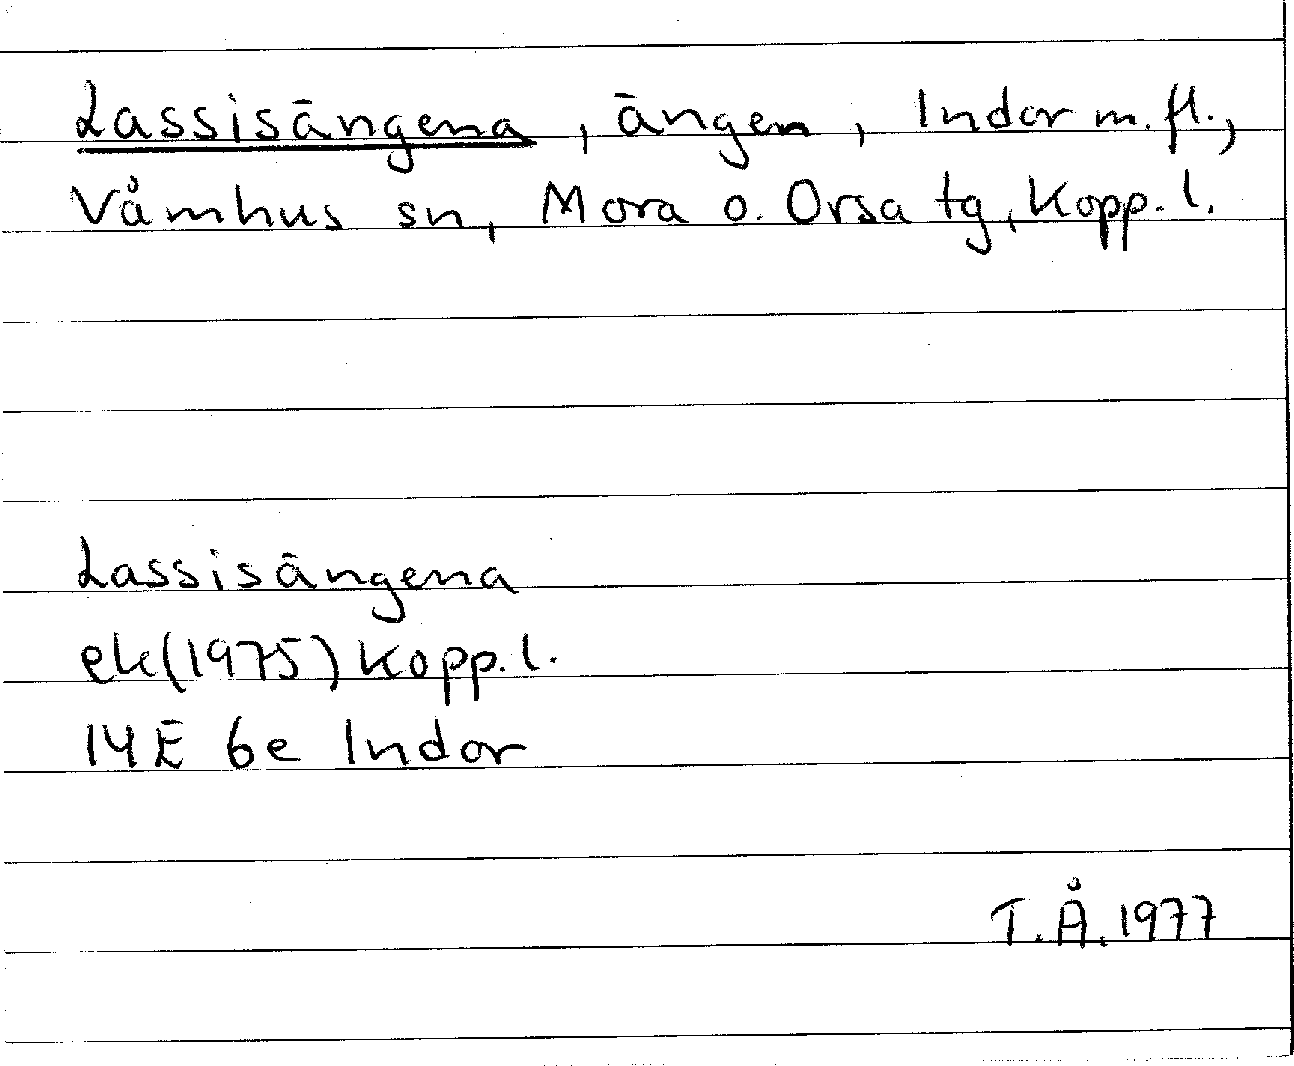 Lassisängena, ängen, Indor m.fl.,
Våmhus sn, Mora o. Orsa tg, Kopp. l.
Lassisängena
ek(1975) Kopp. l.
14E 6e Indor
T.Å. 1977